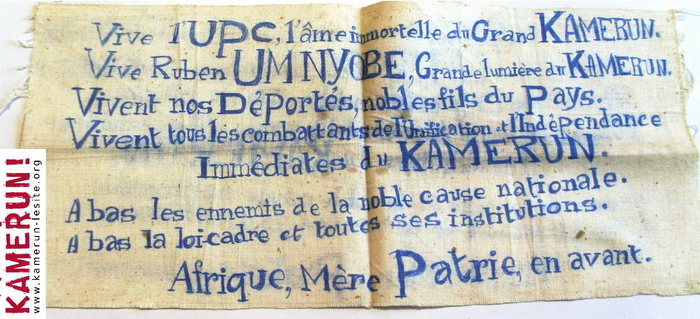 Vive l'UPC, l'âme immortelle du Grand KAMERUN.
Vive Ruben UM NYOBE, Grande lumière du KAMERUN.
Vivent nos Déportés, nobles fils du Pays.
Vivent tous les combattants de l'Unification et l'Indépendance
Immédiates du KAMERUN.
A bas les ennemis de la noble cause nationale.
A bas la loi-cadre et toutes ses institutions.
Afrique, Mère Patrie, en avant.
KAMERUN!
www.kamerun-lesite.org